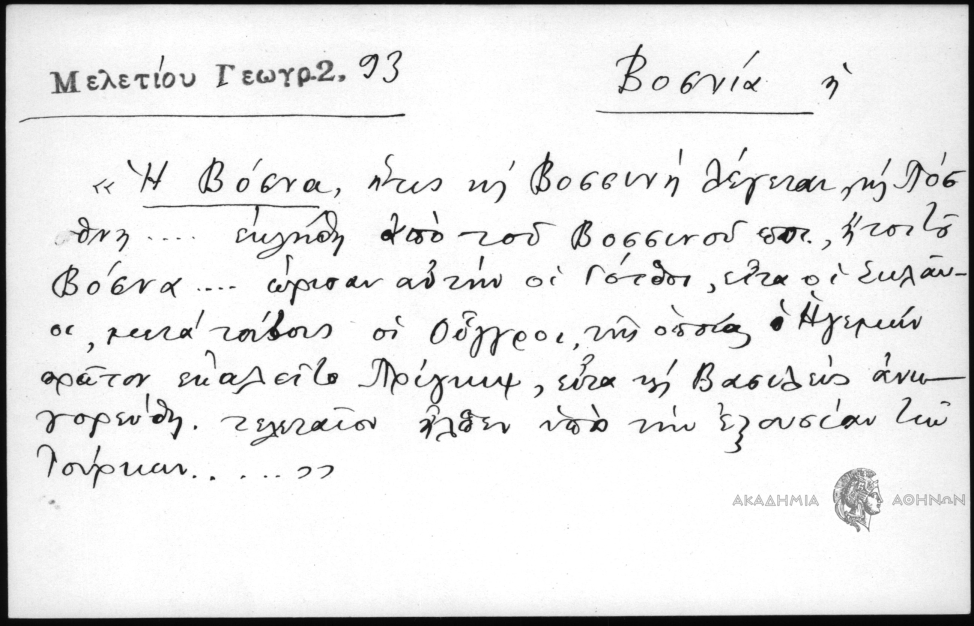 Μελετίου Γεωγρ. 2, 93
Βοσνία ἡ
«Ἡ Βόσνα, ἥτις κὴ Βοσσινὴ λέγεται, κὴ Πόσ
θνη .... ἐκλήθη ἀπὸ τοῦ Βοσσινοῦ ποτ., ἤτοι τῦ
Βόσνα .... ὥρισαν αὐτὴν οἱ Γότθοι, εἶτα οἱ Σκλάβ-
οι, μετὰ τούτους οἱ Οὖγγροι, τῆς ὁποίας ὁ Ἡγεμὼν
πρῶτον ἐκαλεῖτο Πρίγκιψ, εἶτα κὴ Βασιλεὺς ἀνη-
γορεύθη. τελεταῖον ἦλθεν ὑπὸ τὴν ἐξουσίαν τῶν
Τούρκων......»
ΑΚΑΔΗΜΙΑ ΑΘΗΝΩΝ